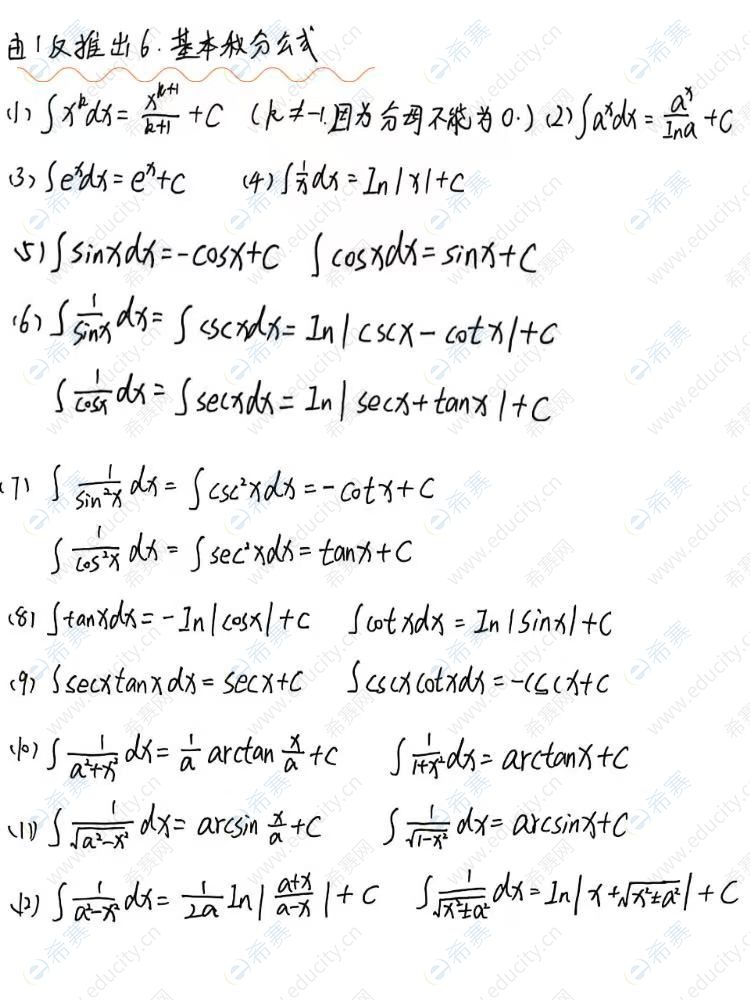 由1反推出6.基本积分公式
(1) ∫x^k dx = x^(k+1)/(k+1) + C (k≠-1.因为分母不能为0.) (2) ∫a^x dx = a^x/Ina + C
(3) ∫e^x dx = e^x + C (4) ∫1/x dx = In|x| + C
(5) ∫sinxdx = -cosx + C ∫cosxdx = sinx + C
(6) ∫1/sinx dx = ∫cscxdx = In|cscx - cotx| + C
∫1/cosx dx = ∫secxdx = In|secx + tanx| + C
(7) ∫1/sin²x dx = ∫csc²xdx = -cotx + C
∫1/cos²x dx = ∫sec²xdx = tanx + C
(8) ∫tanxdx = -In|cosx| + C ∫cotxdx = In|sinx| + C
(9) ∫secxtanxdx = secx + C ∫cscxcotxdx = -cscx + C
(10) ∫1/(a²+x²) dx = 1/a arctan x/a + C ∫1/(1+x²) dx = arctanx + C
(11) ∫1/√(a²-x²) dx = arcsin x/a + C ∫1/√(1-x²) dx = arcsinx + C
(12) ∫1/(a²-x²) dx = 1/2a In|(a+x)/(a-x)| + C ∫1/√(x²±a²) dx = In|x+√(x²±a²)| + C
希赛
希赛网
www.educity.cn